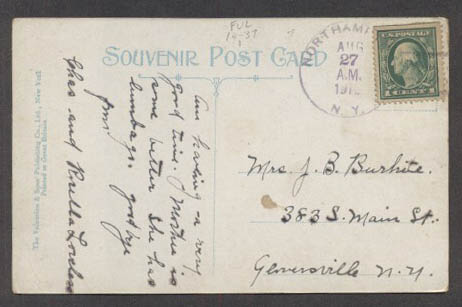 FUL
19-37
1
SOUVENIR POST CARD
NORTHAM
AUG
27
A.M.
191
N.Y.
1 CENT 1
Am having a very
good time. Mother is
some better she has
lumbago. good bye
from
Chas and Luella Loveless
The Valentine & Sons Publishing Co., Ltd., New York
Printed in Great Britain.
Mrs. J. B. Burhite.
383 S. Main St.
Gloversville N.Y.